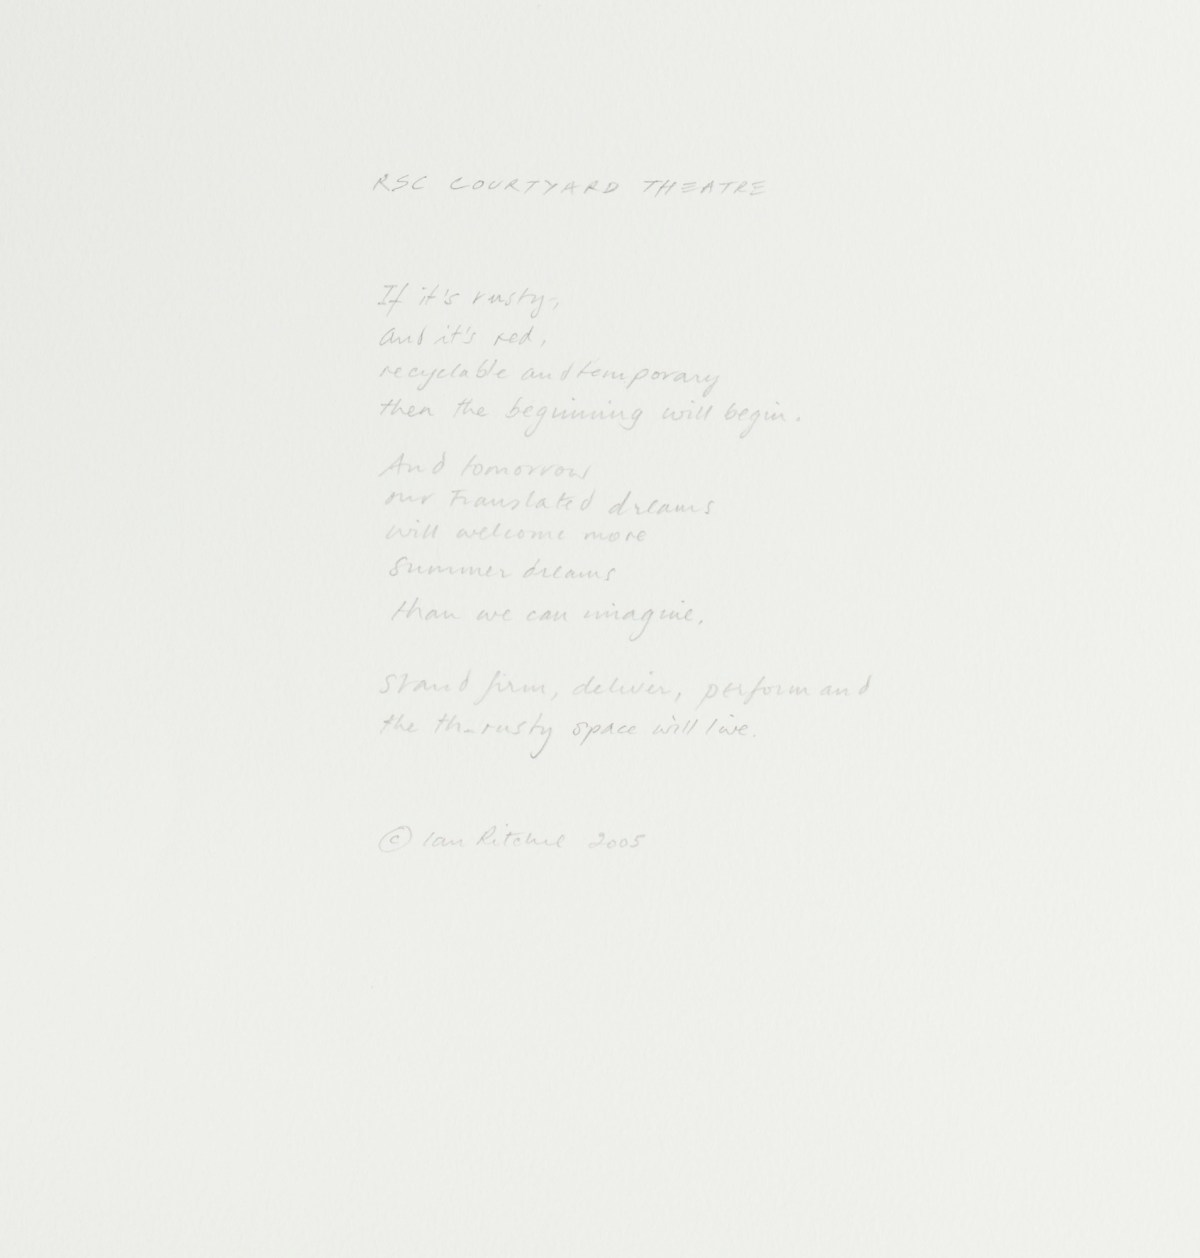 RSC COURTYARD THEATRE
If it's rusty,
And it's red,
recyclable and temporary
then the beginning will begin.
And tomorrow
our translated dreams
will welcome more
summer dreams
than we can imagine.
Stand firm, deliver, perform and
the th_rusty space will live.
© Ian Ritchie 2005